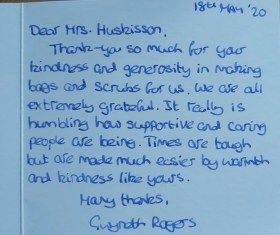 18th MAY '20
Dear Mrs. Huskisson,
Thank-you so much for your
kindness and generosity in making
bags and scrubs for us. We are all
extremely grateful. It really is
humbling how supportive and caring
people are being. Times are tough
but are made much easier by warmth
and kindness like yours.
Many thanks,
Gwyneth Rogers